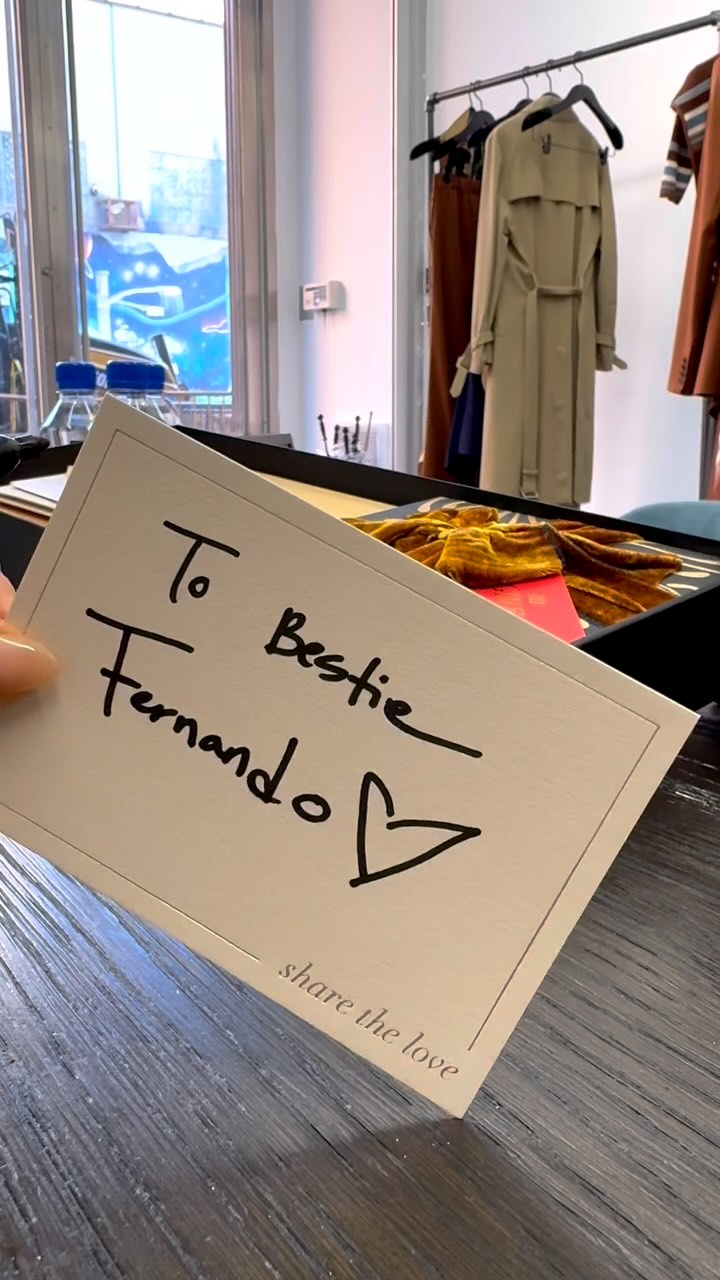 To Bestie
Fernando
share the love